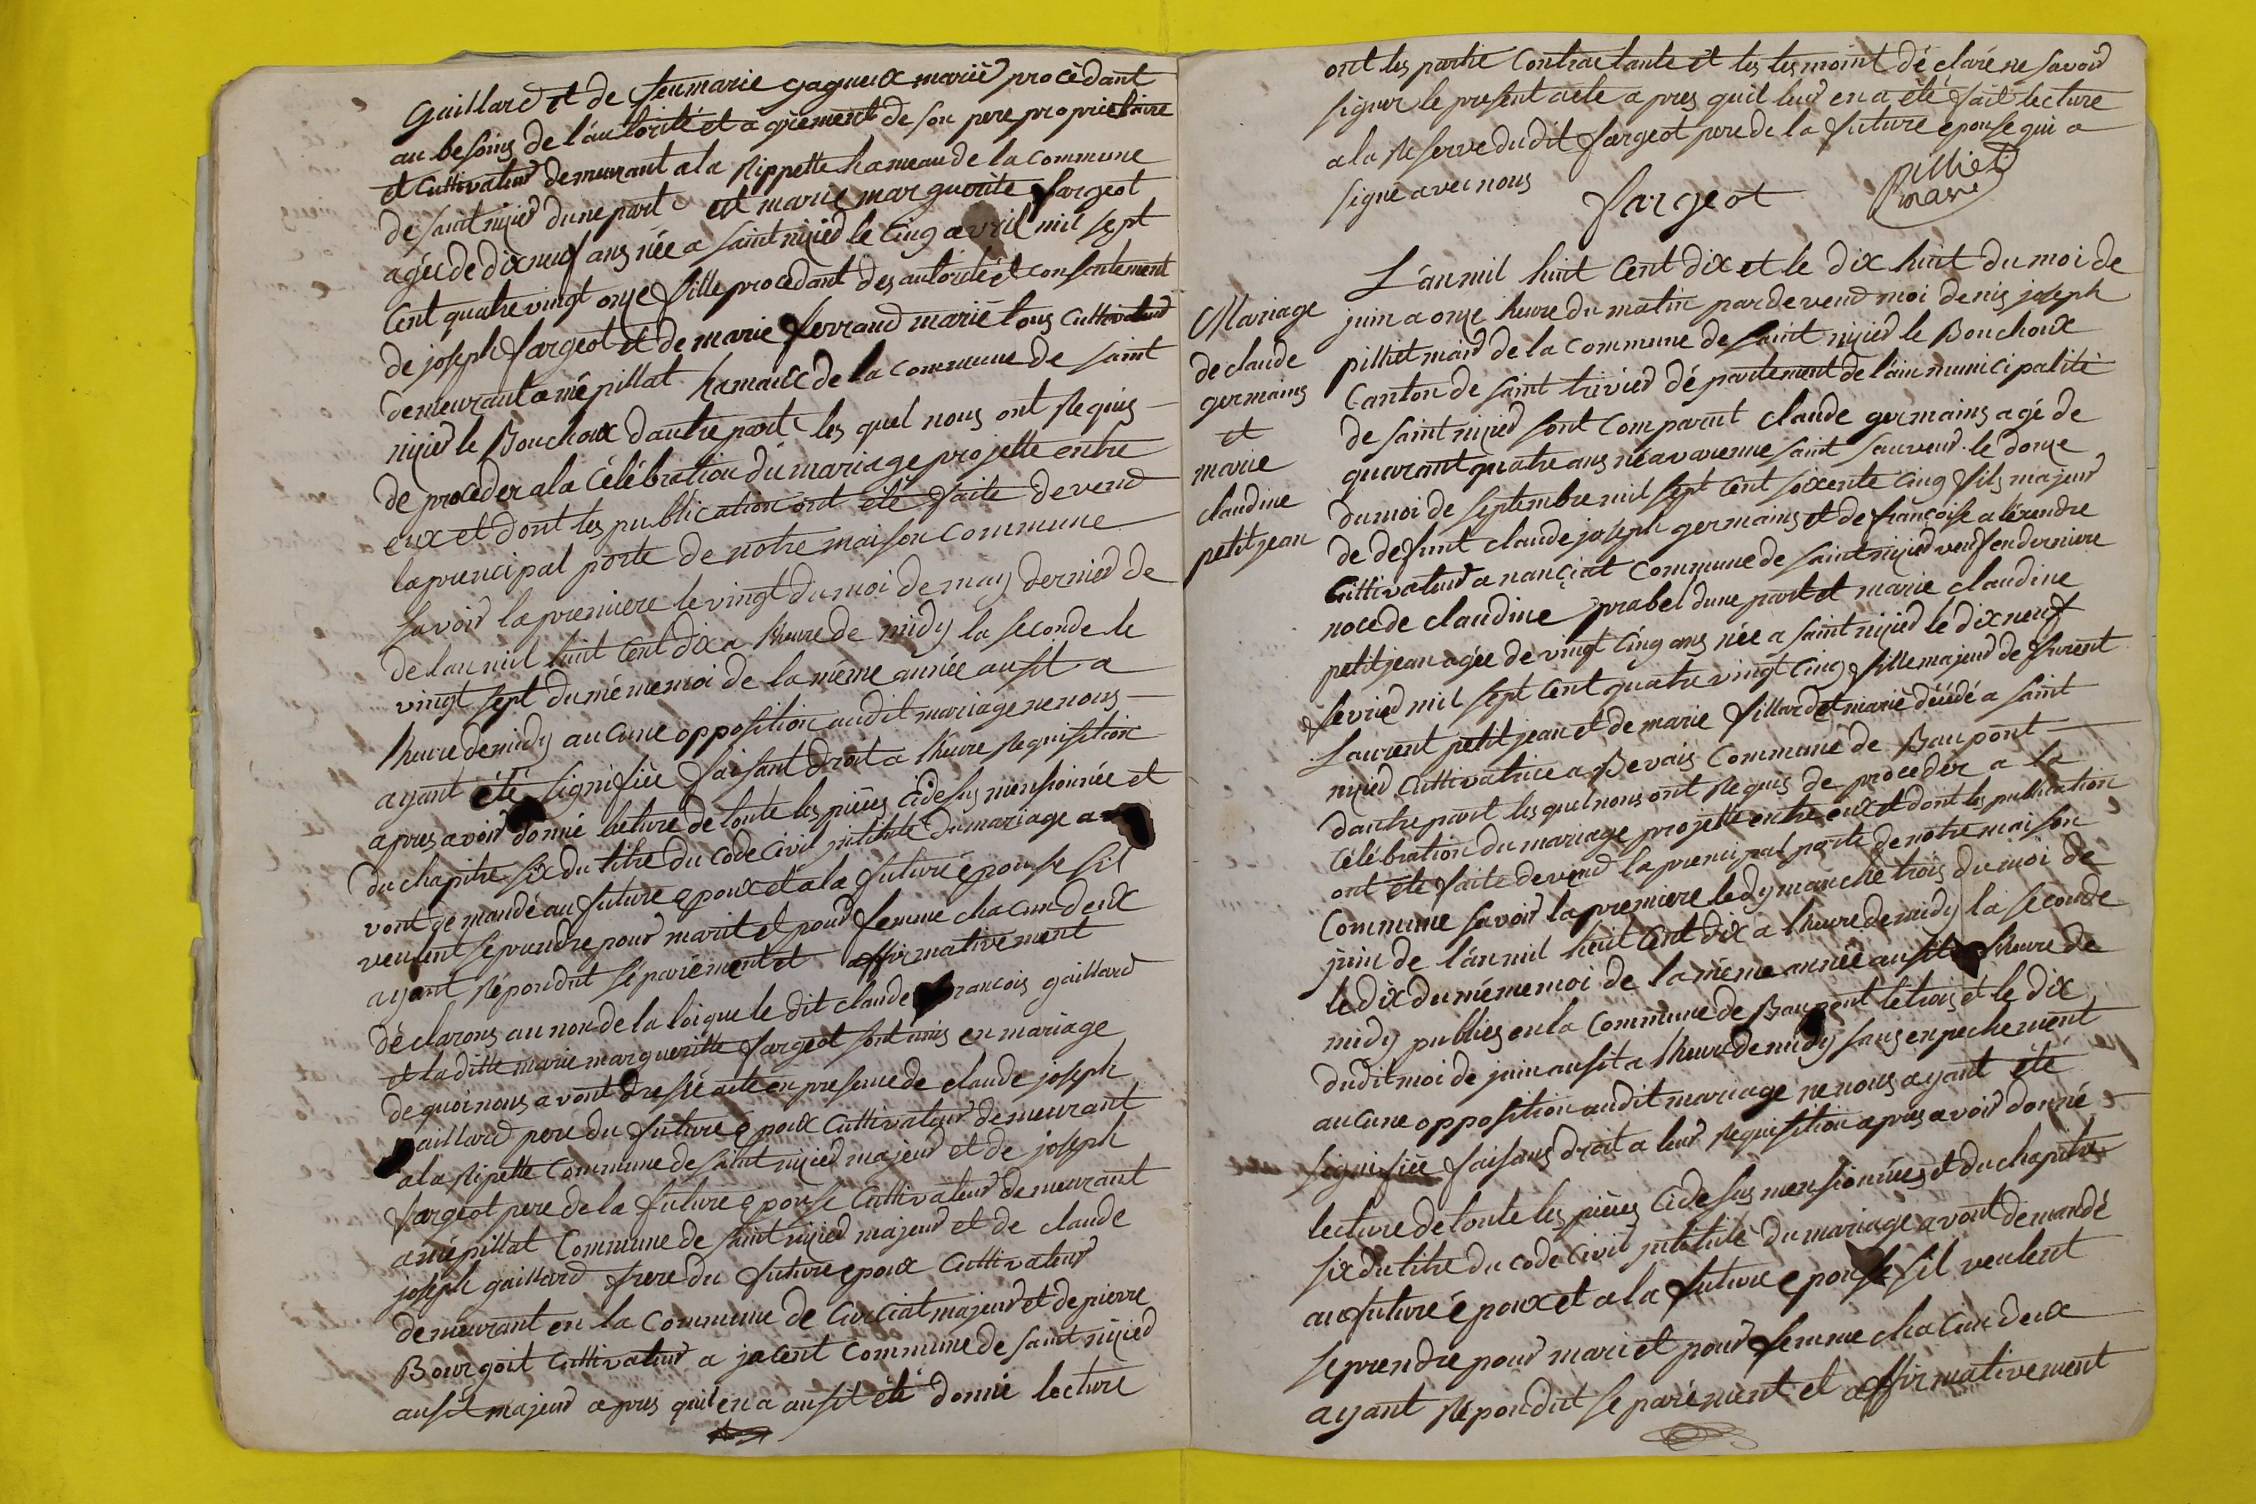 Gaillard et de feu marie gagneux marié procédant
au besoins de l'autorité et agrément de son pere proprietaire
et Cultivateur demeurant a la Rippette hameau de la commune
de saint nizier dune part et marie marguerite fargeot
agée de dix neuf ans née a saint nizier le Cinq avril mil sept
Cent quatre vingt onze fille procedant des autorité et consentement
de joseph fargeot et de marie ferraud marié tous Cultivateur
demeurant a mépillat hamaux de la commune de saint
nizier le Bouchoux dautre part les quel nous ont Requis
de proceder a la Célébration du mariage projetté entre
eux et dont les publication ont été faite devend
la prencipal porte de notre maison commune
savoir la premiere le vingt du moi de may dernier de
de lan mil huit Cent dix a lheure de midy la seconde le
vingt sept du méme moi de la méme année ausit a
lheure de midy aucune opposition audit mariage ne nous
ayant été signifiée faisant droit a lheure Requisition
apres avoir donné lecture de toute les pièces Cidesus mensionnée et
du chapitre six du titre du code Civil intitulé du mariage a
vont demandé au future epoux et a la future épouse sil
veulent se prendre pour marit et pour femme chacun deux
ayant Répondut séparément et affirmativement
déclarons au nom de la loi que le dit claude francois gaillard
et la ditte marie margueritte fargeot sont unis en mariage
de quoi nous avont dressé acte en présence de claude joseph
gaillard pere du future époux Cultivateur demeurant
a la Ripette Commune de saint nizier majeur et de joseph
fargeot pere de la future epouse Cultivateur demeurant
a mépillat Commune de saint nizier majeur et de claude
joseph gaillard frere du future epoux Cultivateur
demeurant en la Commune de Curciat majeur et de pierre
Bourgoit Cultivateur a jacent Commune de saint nizier
ausit majeur apres quil en a ausit été donné lecture
ont les partie Contractante et les tesmoint déclaré ne savoir
signer le present acte apres quil leur en a été fait lecture
a la Reserve dudit fargeot pere de la future epouse qui a
signé avec nous
fargeot
pilliet
maire
Mariage
de claude
germains
et
marie
claudine
petitjean
L'an mil huit Cent dix et le dix huit du moi de
juin a onze heure du matin pardevend moi denis joseph
pilliet maire de la commune de saint nizier le Bouchoux
Canton de saint trivier département de lain municipalité
de saint nizier sont comparut claude germains agé de
quarant quatre ans né a varenne saint sauveur le douze
du moi de septembre mil sept Cent soixente Cinq fils majeur
de defunt claude joseph germains et de françoise alexendre
Cultivateur a nançiat Commune de saint nizier veuf en derniere
noce de claudine prabel dune part et marie claudine
petitjean agée de vingt Cinq ans née a saint nizier le dix neuf
fevrier mil sept Cent quatre vingt Cinq fille majeur de furent
Laurent petitjean et de marie fillardet marié décédé a saint
nizier Cultivatrice a Bevais Commune de Baupont
dautre part les quel nous ont Requis de proceder a la
Célébration du mariage projetté entre eux et dont les publication
ont été faite devend la prencipal porte de notre maison
Commune savoir la premiere le dymanche trois du moi de
juin de l'an mil huit Cent dix a lheure de midy la seconde
le dix du méme moi de la méme année ausit a lheure de
midy publies en la Commune de Baupont le trois et le dix
dudit moi de juin ausit a lheure de midy sans enpechement
aucune opposition audit mariage ne nous ayant été
signifiée faisant droit a leur Requisition apres avoir donné
lecture de toute les pièces Cidesus mensionnées et du chapitre
six du titre du code Civil intitulé du mariage avont demandé
au future époux et a la future epouse sil veulent
se prendre pour mari et pour femme chacun deux
ayant Répondut separément et affirmativement